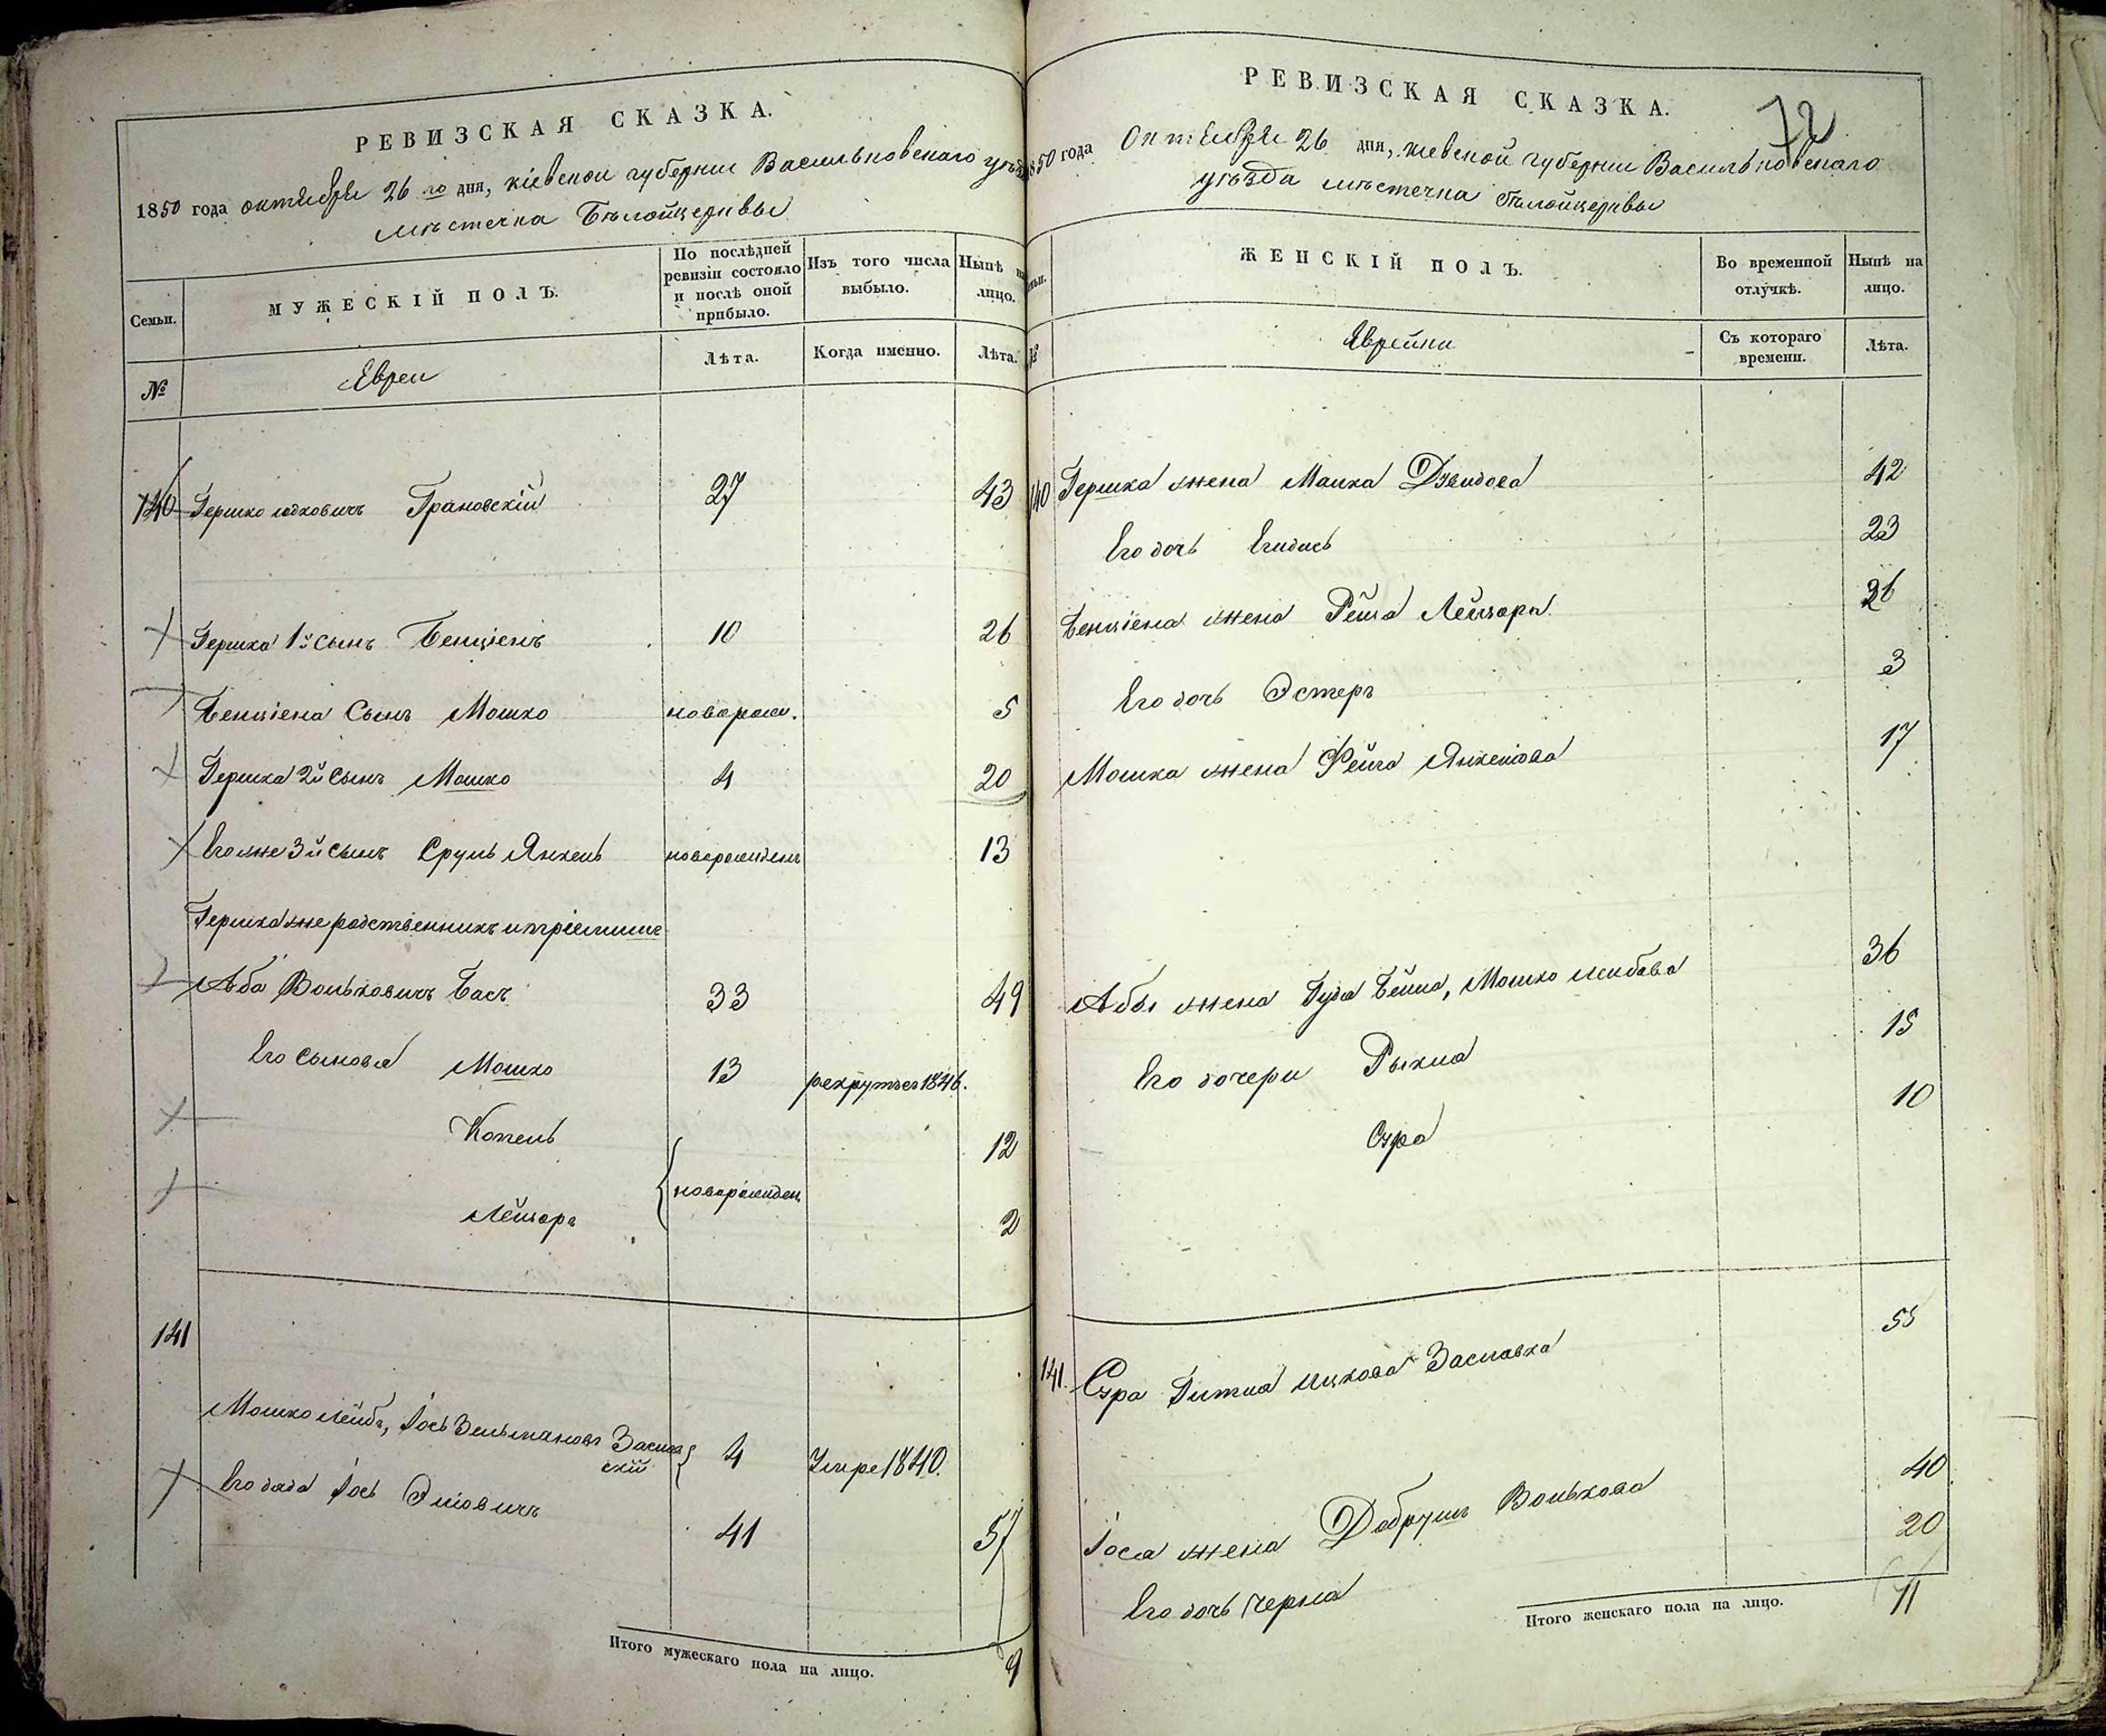 РЕВИЗСКАЯ СКАЗКА.
1850 года октября 26 го дня, кіевской губерніи Васильковскаго уѣзда
мѣстечка Бѣлойцеркви
Семьи.
МУЖЕСКІЙ ПОЛЪ.
По послѣдней ревизіи состояло и послѣ оной прибыло.
Изъ того числа выбыло.
Нынѣ на лицо.
№
Евреи
Лѣта.
Когда именно.
Лѣта.
140 Гершко Юдковичъ Грановскій 27 43
Гершка 1й сынъ Бенціенъ 10 26
Бенціена Сынъ Мошко поворожд. 5
Гершка 2й сынъ Мошко 4 20
Его же 3й сынъ Сруль Янкель новорожденъ 13
Гершка же родственникъ и пріемышъ
Аба Вольковичъ Басъ 33 49
Его сыновья Мошко 13 рекрутъ въ 1846.
Копель 12
новорожден
Лейзоръ 2
141
Мошко Лейбъ, Іось Зельмановъ Заслав
скій 4 Умре 1840.
Его дядя Іось Эліовичъ 41 57
Итого мужескаго пола на лицо. 9
РЕВИЗСКАЯ СКАЗКА.
72
1850 года Октября 26 дня, кіевской губерніи Васильковскаго
уѣзда мѣстечка Бѣлойцеркви
Семьи.
ЖЕНСКІЙ ПОЛЪ.
Во временной отлучкѣ.
Нынѣ на лицо.
№
Еврейки
Съ котораго времени.
Лѣта.
140 Гершка жена Малка Дувидова 42
Его дочь 23
Бенціена жена Рейза Лейзоръ. 26
Его дочь Эстеръ 3
Мошка жена Фейга Янкелова 17
Абы жена Гудя Бейла, Мошко Лейбова 36
Его дочери Рыкла 15
Сура 10
141. Сура Гитла Ицкова Заславска 55
Іося жена Добрушъ Волькова 40
Его дочь Черна 20
Итого женскаго пола на лицо. 11